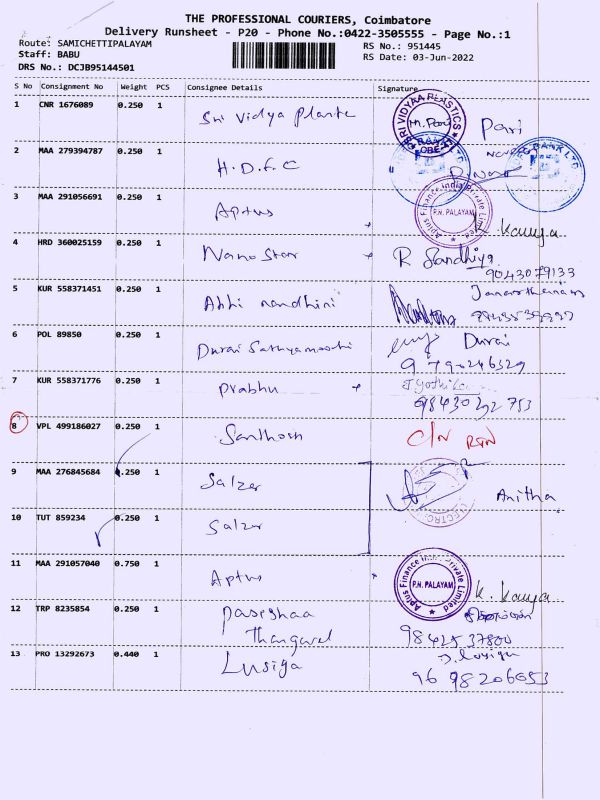 THE PROFESSIONAL COURIERS, Coimbatore
Delivery Runsheet - P20 - Phone No.:0422-3505555 - Page No.:1
Route: SAMICHETTIPALAYAM
Staff: BABU
DRS No.: DCJB95144501
RS No.: 951445
RS Date: 03-Jun-2022
S No Consignment No Weight PCS Consignee Details Signature
1 CNR 1676089 0.250 1 Sri Vidya Plante Pari
SRI VIDYAA PLASTICS
2 MAA 279394787 0.250 1 H.D.F.C
BANK LTD
3 MAA 291056691 0.250 1 Aptus K. Kavya
Aptus Finance India Private Limited
P.N. PALAYAM
4 HRD 360025159 0.250 1 Nano Star R Sandhiya
9043079133
5 KUR 558371451 0.250 1 Abhi nandhini
6 POL 89850 0.250 1 Durai Sathyamoorthi Durai
9790246329
7 KUR 558371776 0.250 1 Prabhu
9843092753
8 VPL 499186027 0.250 1 Santhosh C/N RTN
9 MAA 276845684 0.250 1 Salzer Anitha
ELECTRO
10 TUT 859234 0.250 1 Salzer
11 MAA 291057040 0.750 1 Aptus K. Kavya
Aptus Finance India Private Limited
P.N. PALAYAM
12 TRP 8235854 0.250 1
Thangavel 9842537800
13 PRO 13292673 0.440 1 Lusiya
9698206053